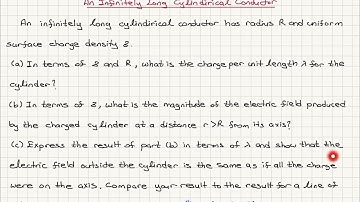 An Infinitely Long Cylindirical Conductor
An infinitely long cylindirical conductor has radius R and uniform
surface charge density 3.
(a) In terms of 3 and R, what is the charge per unit length λ for the
cylinder?
(b) In terms of 3, what is the magnitude of the electric field produced
by the charged cylinder at a distance r>R from its axis?
(c) Express the result of part (b) in terms of λ and show that the
electric field outside the cylinder is the same as if all the charge
were on the axis. Compare your result to the result for a line of